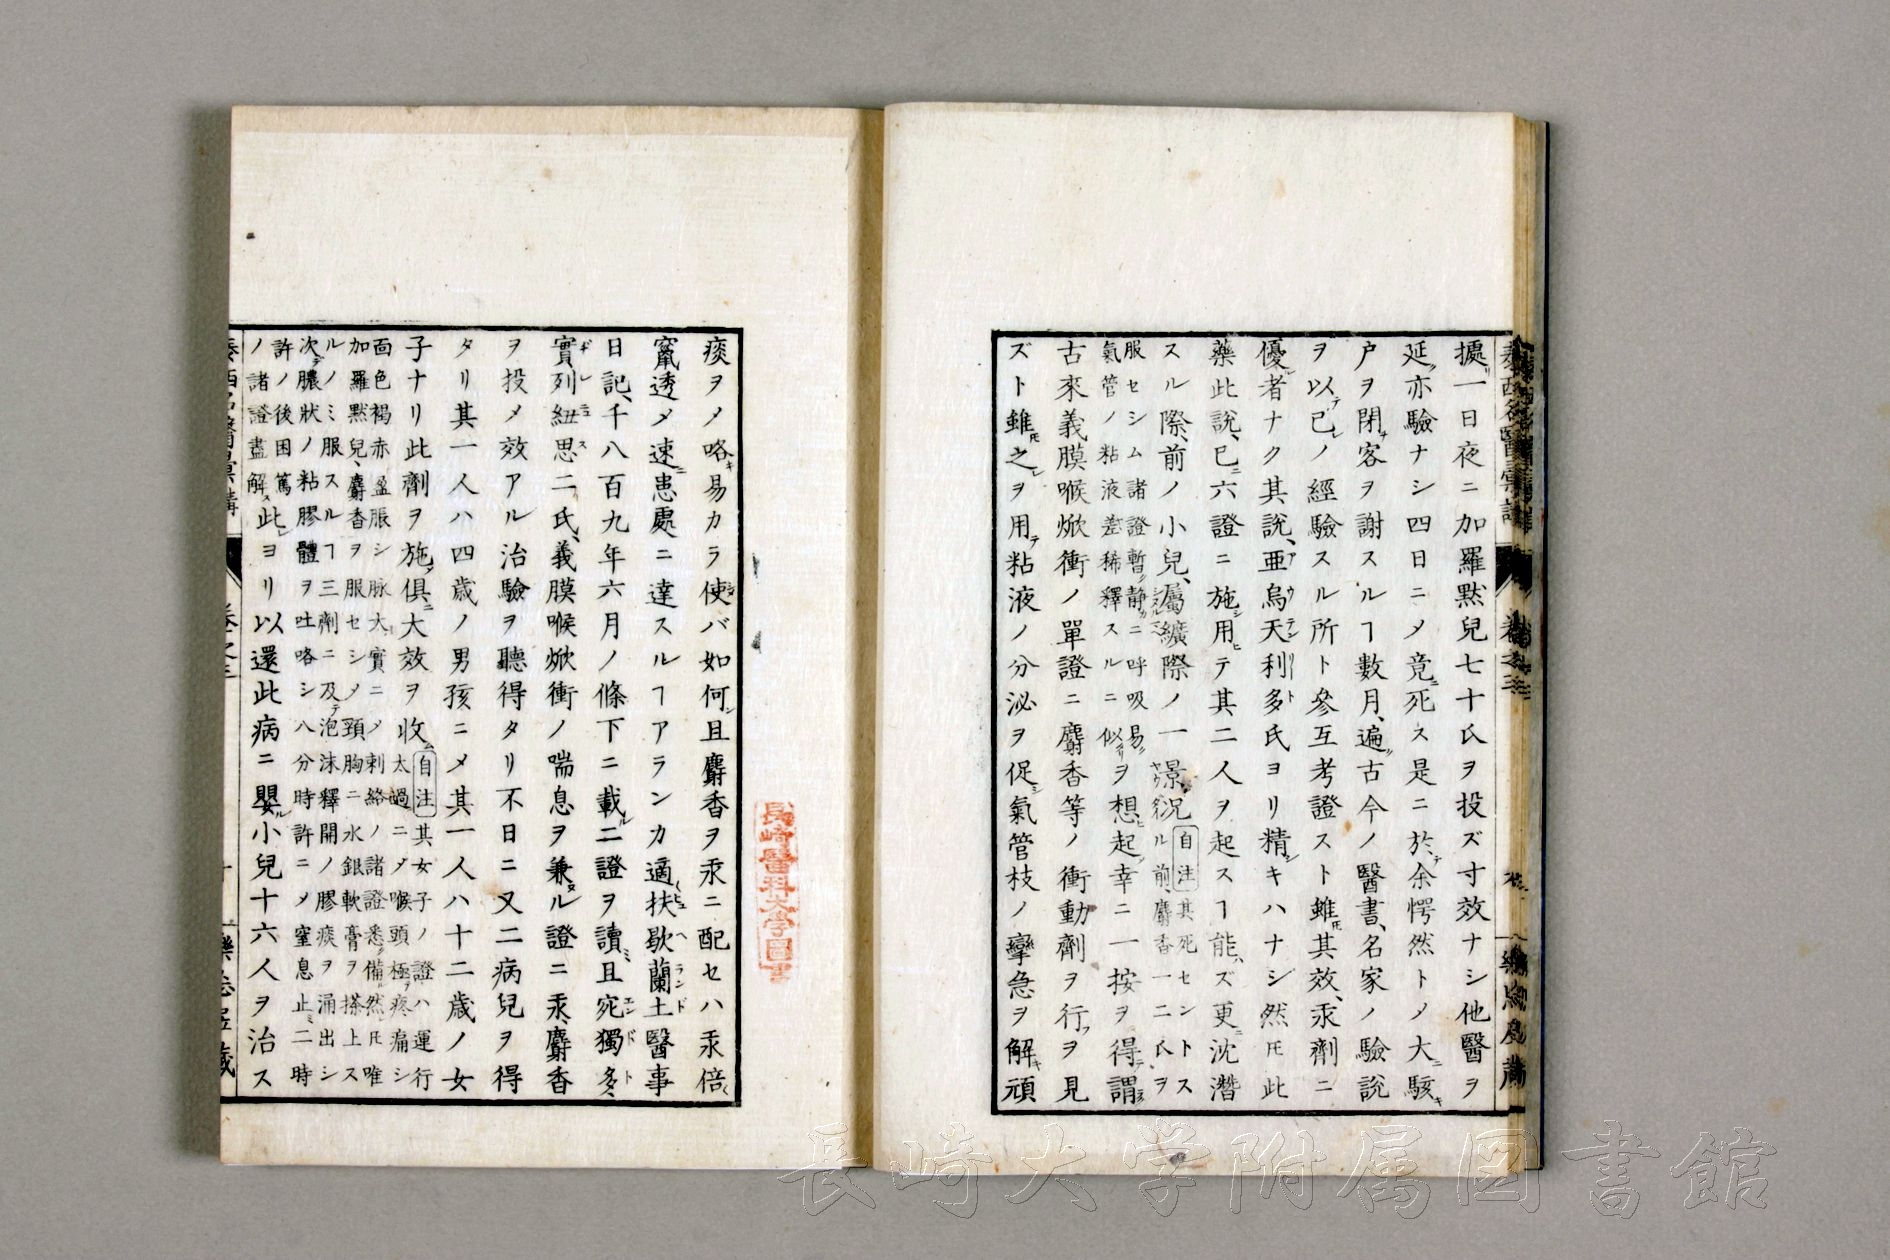 擄リ一日夜ニ加羅默兒七十氏ヲ投ズ寸效ナシ他醫ヲ
延ヿ亦驗ナシ四日ニメ竟ニ死ス是ニ於テ余愕然トメ大ニ駭キ
戸ヲ閉チ客ヲ謝スルヿ數月、遍ク古今ノ醫書、名家ノ驗説
ヲ以テ已レノ經驗スル所ト參互考證スト雖ㇶ其效、汞劑ニ
優ル者ナク其説、亜烏天利多氏ヨリ精シキハナシ然ㇳモ此
藥此説、已ニ六證ニ施シ用ヒテ其二人ヲ起スヿ能ハズ更ニ沈潛
スル際、前ノ小兒、屬纊際ノ一景況
自注
其死セントス
ル前、麝香一二氏ヲ
服セシム諸證暫ク静カニ呼吸易シ
氣管ノ粘液差稀釋スルニ似タリ
ヲ想ヒ起シ幸ニ一按ヲ得テ謂ラク
古來義膜喉焮衝ノ單證ニ麝香等ノ衝動劑ヲ行フヲ見
ズト雖ㇳモ之レヲ用テ粘液ノ分泌ヲ促シ氣管枝ノ攣急ヲ解キ頑
泰西名醫彙講
卷之三
痰ヲメ咯キ易カラ使メバ如何ン且麝香ヲ汞ニ配セハ汞倍〻
竄透メ速ニ患處ニ達スルヿアランカ適〻扶歇蘭土醫事
日記、千八百九年六月ノ條下ニ載ル二證ヲ讀ミ、且宛獨多
實列紐思二氏、義膜喉焮衝ノ喘息ヲ兼タル證ニ汞、麝香
ヲ投メ效アル治驗ヲ聽得タリ不日ニ又二病兒ヲ得
タリ其一人ハ四歳ノ男孩ニメ其一人ハ十二歳ノ女
子ナリ此劑ヲ施シ俱ニ大效ヲ收ム
自注
其女子ノ證ハ運行
太過ニメ喉頭極テ疼痛シ
面色褐赤盈脹シ脉大實ニメ刺絡ノ諸證悉ク備ル然レㇳモ唯
加羅默兒、麝香ヲ服セシメ頸胸ニ水銀軟膏ヲ搽上ス
ルノミ服スルヿ三劑ニ及テ泡沫釋開ノ膠痰ヲ涌出シ
次テ膿狀ノ粘膠體ヲ吐咯シ八分時許ニメ窒息止ミ二時
許ノ後困篤
ノ諸證盡解ス
此レヨリ以還此病ニ嬰ル小兒十六人ヲ治ス
長崎醫科大學圖書
長崎大学附属図書館